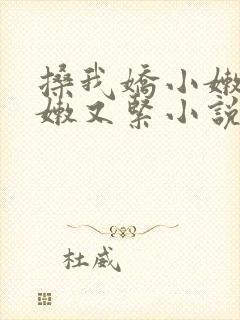 搡我嬌小嫩
嫩又緊小說
杜威